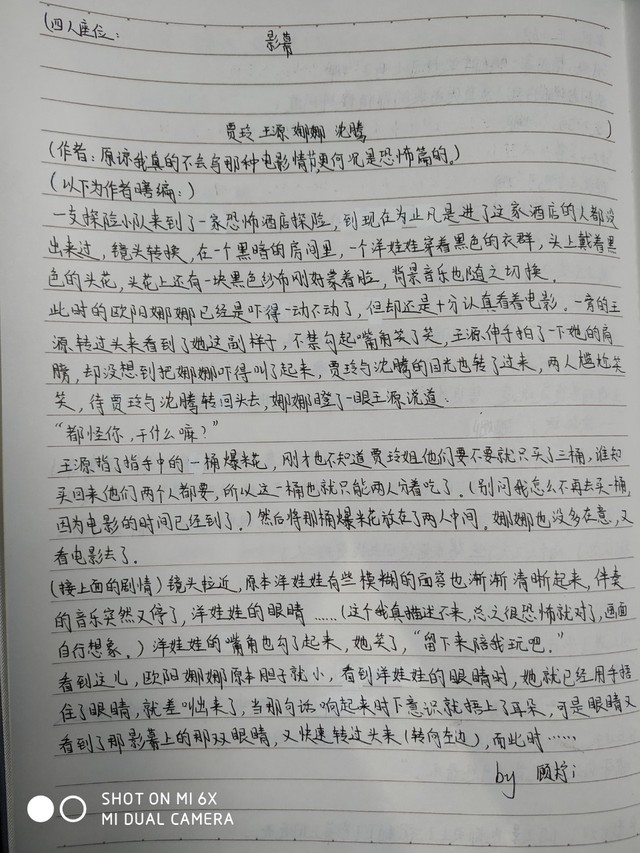 (四人座位:
影幕
贾玲 王源 娜娜 沈腾 )
(作者:原谅我真的不会写那种电影情节更何况是恐怖篇的。)
(以下为作者瞎编:)
一支探险小队来到了一家恐怖酒店探险,到现在为止凡是进了这家酒店的人都没
出来过,镜头转换,在一个黑暗的房间里,一个洋娃娃穿着黑色的衣群,头上戴着黑
色的头花,头花上还有一块黑色纱布刚好蒙着脸,背景音乐也随之切换.
此时的欧阳娜娜已经是吓得一动不动了,但却还是十分认真看着电影.一旁的王
源转过头来看到了她这副样子,不禁勾起嘴角笑了笑,王源伸手拍了一下她的肩
膀,却没想到把娜娜吓得叫了起来,贾玲与沈腾的目光也转了过来,两人尴尬笑
笑,待贾玲与沈腾转回头去,娜娜瞪了一眼王源说道:
“都怪你,干什么嘛?”
王源指了指手中的一桶爆米花,刚才也不知道贾玲姐他们要不要就只买了三桶,谁知
买回来他们两个人都要,所以这一桶也就只能两人分着吃了.(别问我怎么不再去买一桶,
因为电影的时间已经到了.)然后将那桶爆米花放在了两人中间.娜娜也没多在意,又
看电影去了.
(接上面的剧情)镜头拉近,原本洋娃娃有些模糊的面容也渐渐清晰起来,伴奏
的音乐突然又停了,洋娃娃的眼睛……(这个我真描述不来,总之很恐怖就对了,画面
自行想象.)洋娃娃的嘴角也勾了起来,她笑了,“留下来陪我玩吧.”
看到这儿,欧阳娜娜原本胆子就小,看到洋娃娃的眼睛时,她就已经用手捂
住了眼睛,就差叫出来了,当那句话响起来时下意识就捂上了耳朵,可是眼睛又
看到了那影幕上的那双眼睛,又快速转过头来(转向左边),而此时……
by 顾拧i
SHOT ON MI 6X
MI DUAL CAMERA